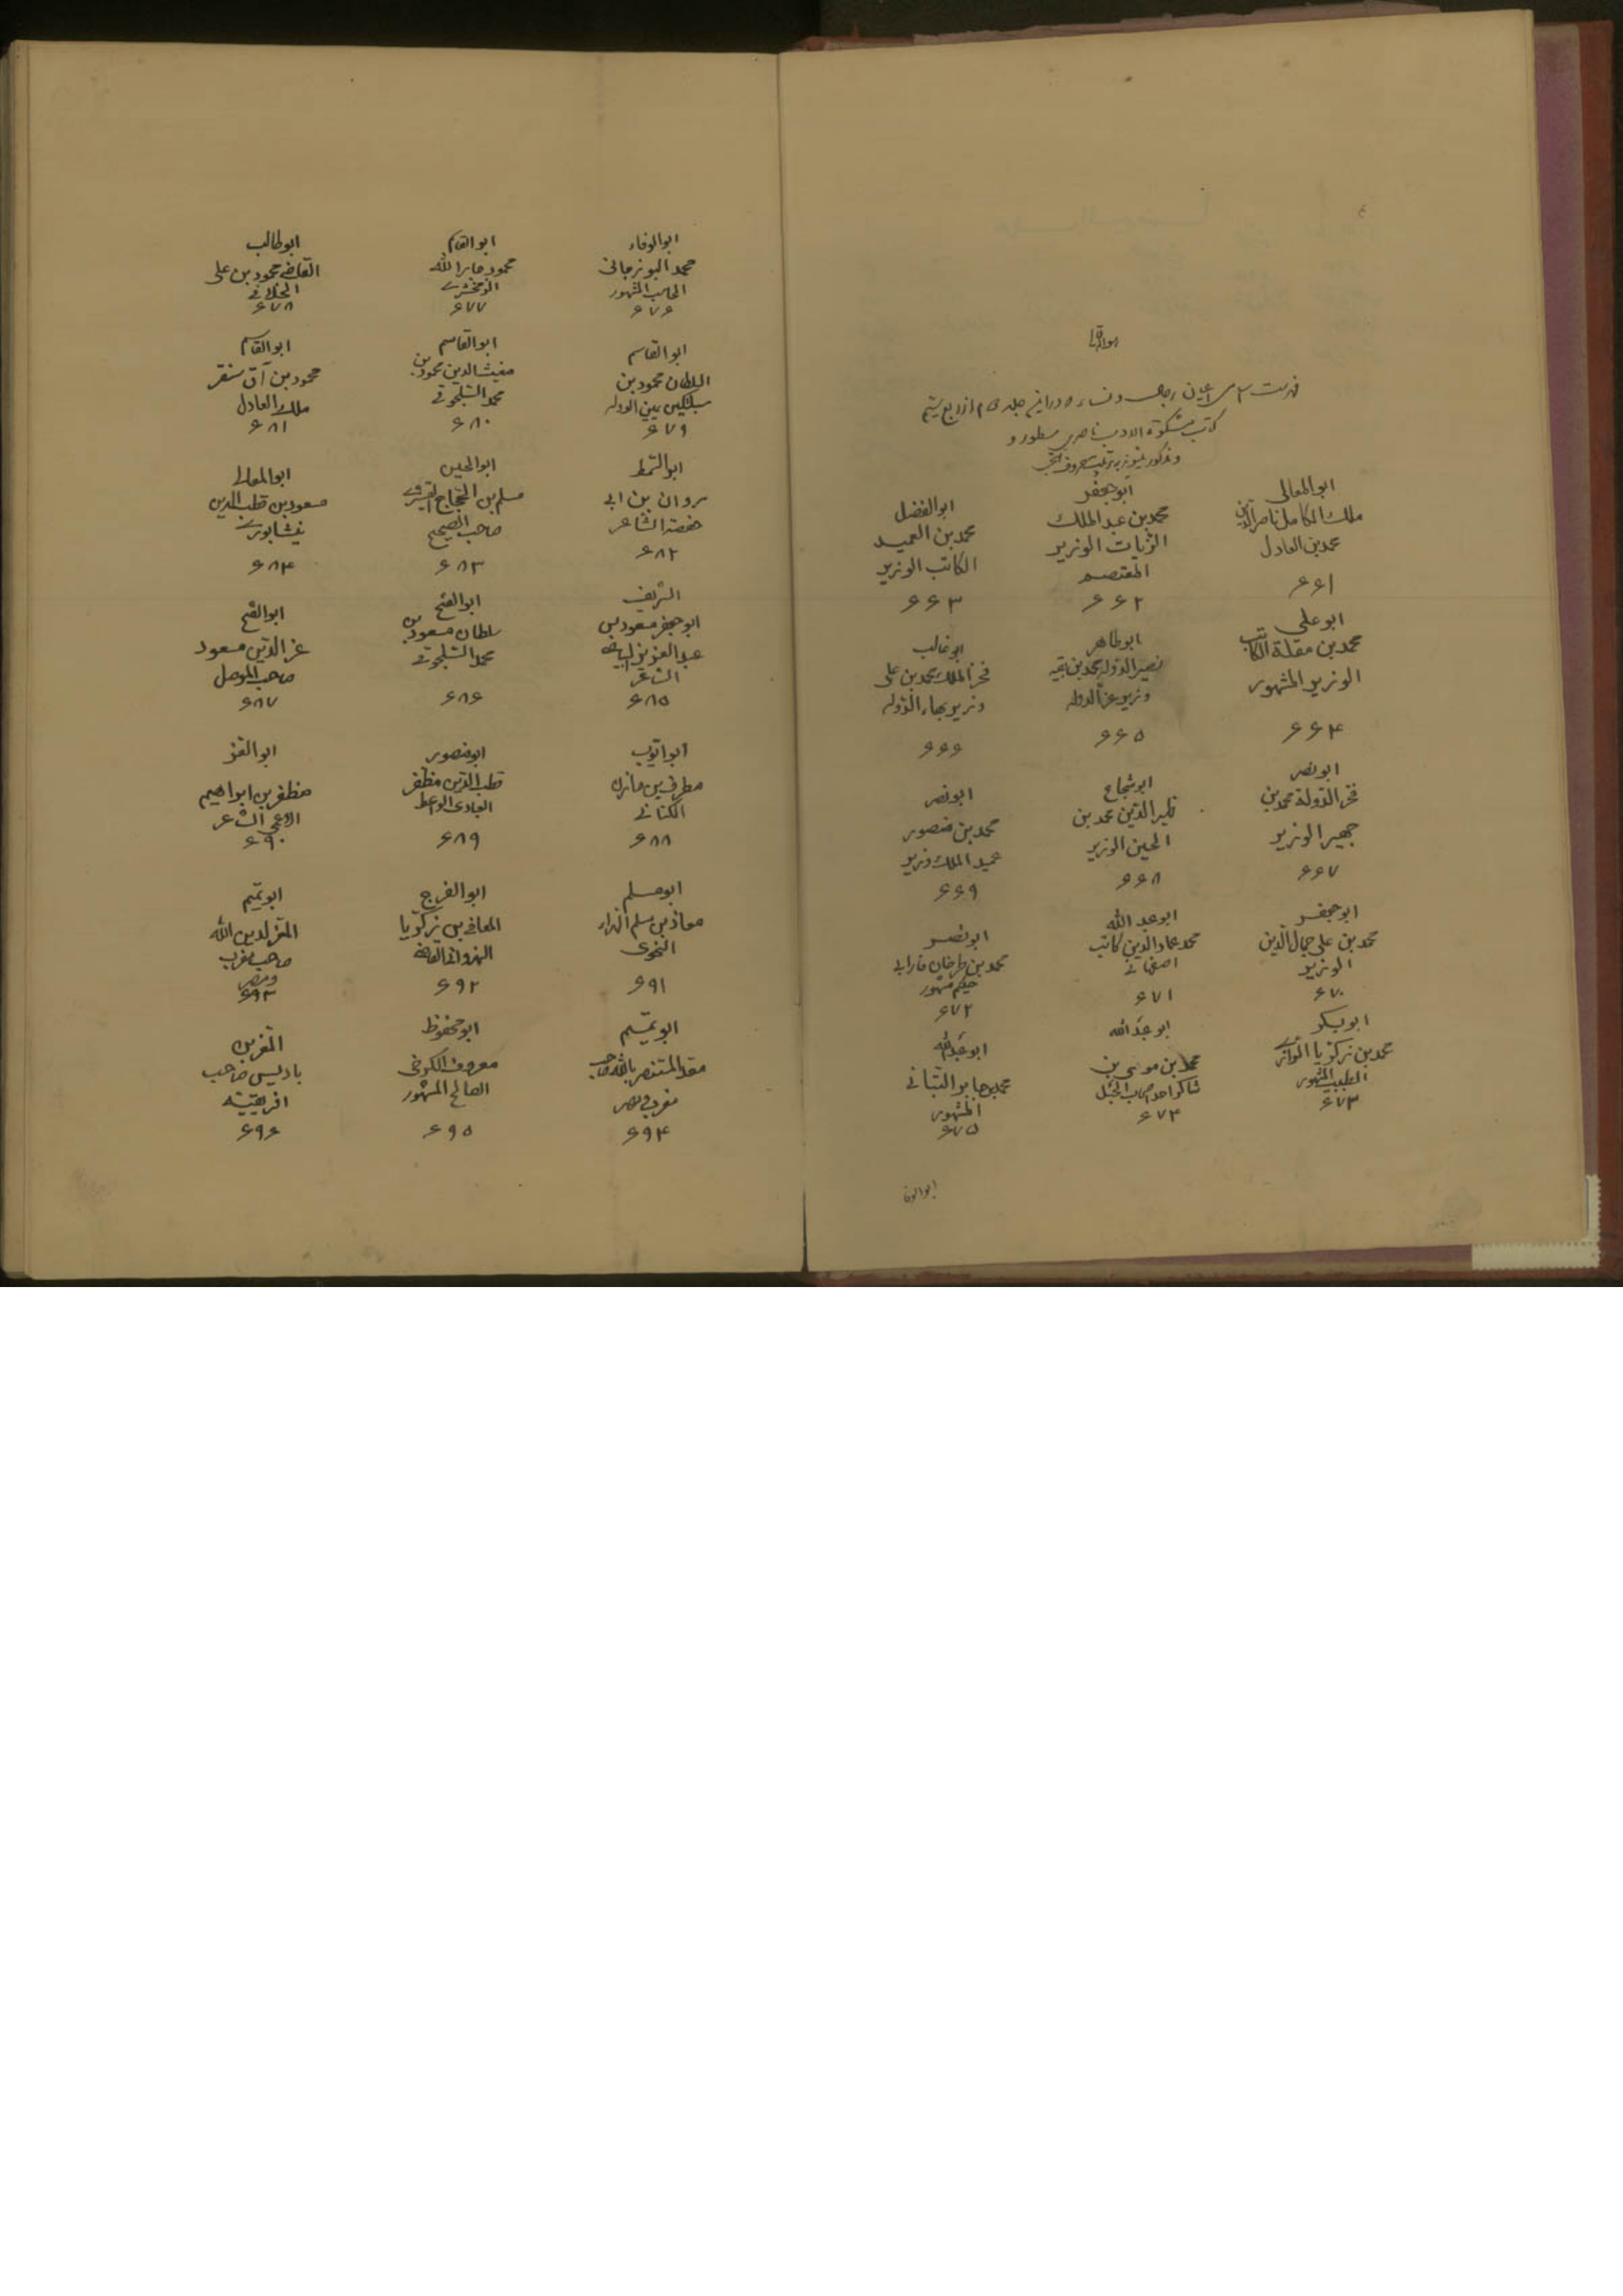 هو الله تعالی
فهرست اسامی اعیان رجال و نساء که در این جلد از ربع ششم
کتاب مشکوة الادب ناصری مسطور و
مذکور میشوند به ترتیب حروف تهجی
ابوالمعالی
ملک الکامل ناصرالدین
محمد بن العادل
۶۶۱
ابوجعفر
محمد بن عبدالملک
الزیات الوزیر
المعتصم
۶۶۲
ابوالفضل
محمد بن العمید
الکاتب الوزیر
۶۶۳
ابوعلی
محمد بن مقلة الکاتب
الوزیر المشهور
۶۶۴
ابوطاهر
نصیرالدوله محمد بن بقیه
وزیر عزالدوله
۶۶۵
ابوغالب
فخرالملک محمد بن علی
وزیر بهاءالدوله
۶۶۶
ابونصر
فخرالدولة محمد بن
جهیر الوزیر
۶۶۷
ابوشجاع
ظهیرالدین محمد بن
الحسین الوزیر
۶۶۸
ابونصر
محمد بن منصور
عمید الملک وزیر
۶۶۹
ابوجعفر
محمد بن علی جمال الدین
الوزیر
۶۷۰
ابوعبدالله
محمد عمادالدین کاتب
اصفهانے
۶۷۱
ابونصر
محمد بن طرخان فارابے
حکیم مشهور
۶۷۲
ابوبکر
محمد بن زکریا الرازی
الطبیب المشهور
۶۷۳
ابوعبدالله
محمد بن موسی بن
شاکر احد اصحاب الحیل
۶۷۴
ابوعبدالله
محمد بن جابر البتانے
المشهور
۶۷۵
ابوالوفا
ابوالوفاء
محمد البوزجانی
الحاسب المشهور
۶۷۶
ابوالقاسم
محمود جارالله
الزمخشرے
۶۷۷
ابوطالب
القاضے محمود بن علی
۶۷۸
ابوالقاسم
السلطان محمود بن
سبکتکین یمین الدوله
۶۷۹
ابوالقاسم
مغیث الدین محمود بن
محمد السلجوقے
۶۸۰
ابوالقاسم
محمود بن آق سنقر
ملک العادل
۶۸۱
ابوالسمط
مروان بن ابی
حفصة الشاعر
۶۸۲
ابوالحسین
مسلم بن الحجاج القشیری
صاحب الصحیح
۶۸۳
ابوالمعالے
مسعود بن قطب الدین
نیشابورے
۶۸۴
الشریف
ابوجعفر مسعود بن
عبدالعزیز البیاضے
الشاعر
۶۸۵
ابوالفتح
سلطان مسعود بن
محمد السلجوقے
۶۸۶
ابوالفتح
عزالدین مسعود
صاحب الموصل
۶۸۷
ابوایوب
مطرف بن مازن
الکنانے
۶۸۸
ابومنصور
قطب الدین مظفر
العبادی الواعظ
۶۸۹
ابوالعز
مظفر بن ابراهیم
الاعمی الشاعر
۶۹۰
ابومسلم
معاذ بن مسلم الهراء
النحوی
۶۹۱
ابوالفرج
المعافی بن زکریا
النهروانی القاضے
۶۹۲
ابوتمیم
المعز لدین الله
صاحب مغرب
ومصر
۶۹۳
ابوتمیم
معد المستنصر بالله صاحب
مغرب و مصر
۶۹۴
ابومحفوظ
معروف الکرخی
الصالح المشهور
۶۹۵
المعز بن
بادیس صاحب
افریقیه
۶۹۶